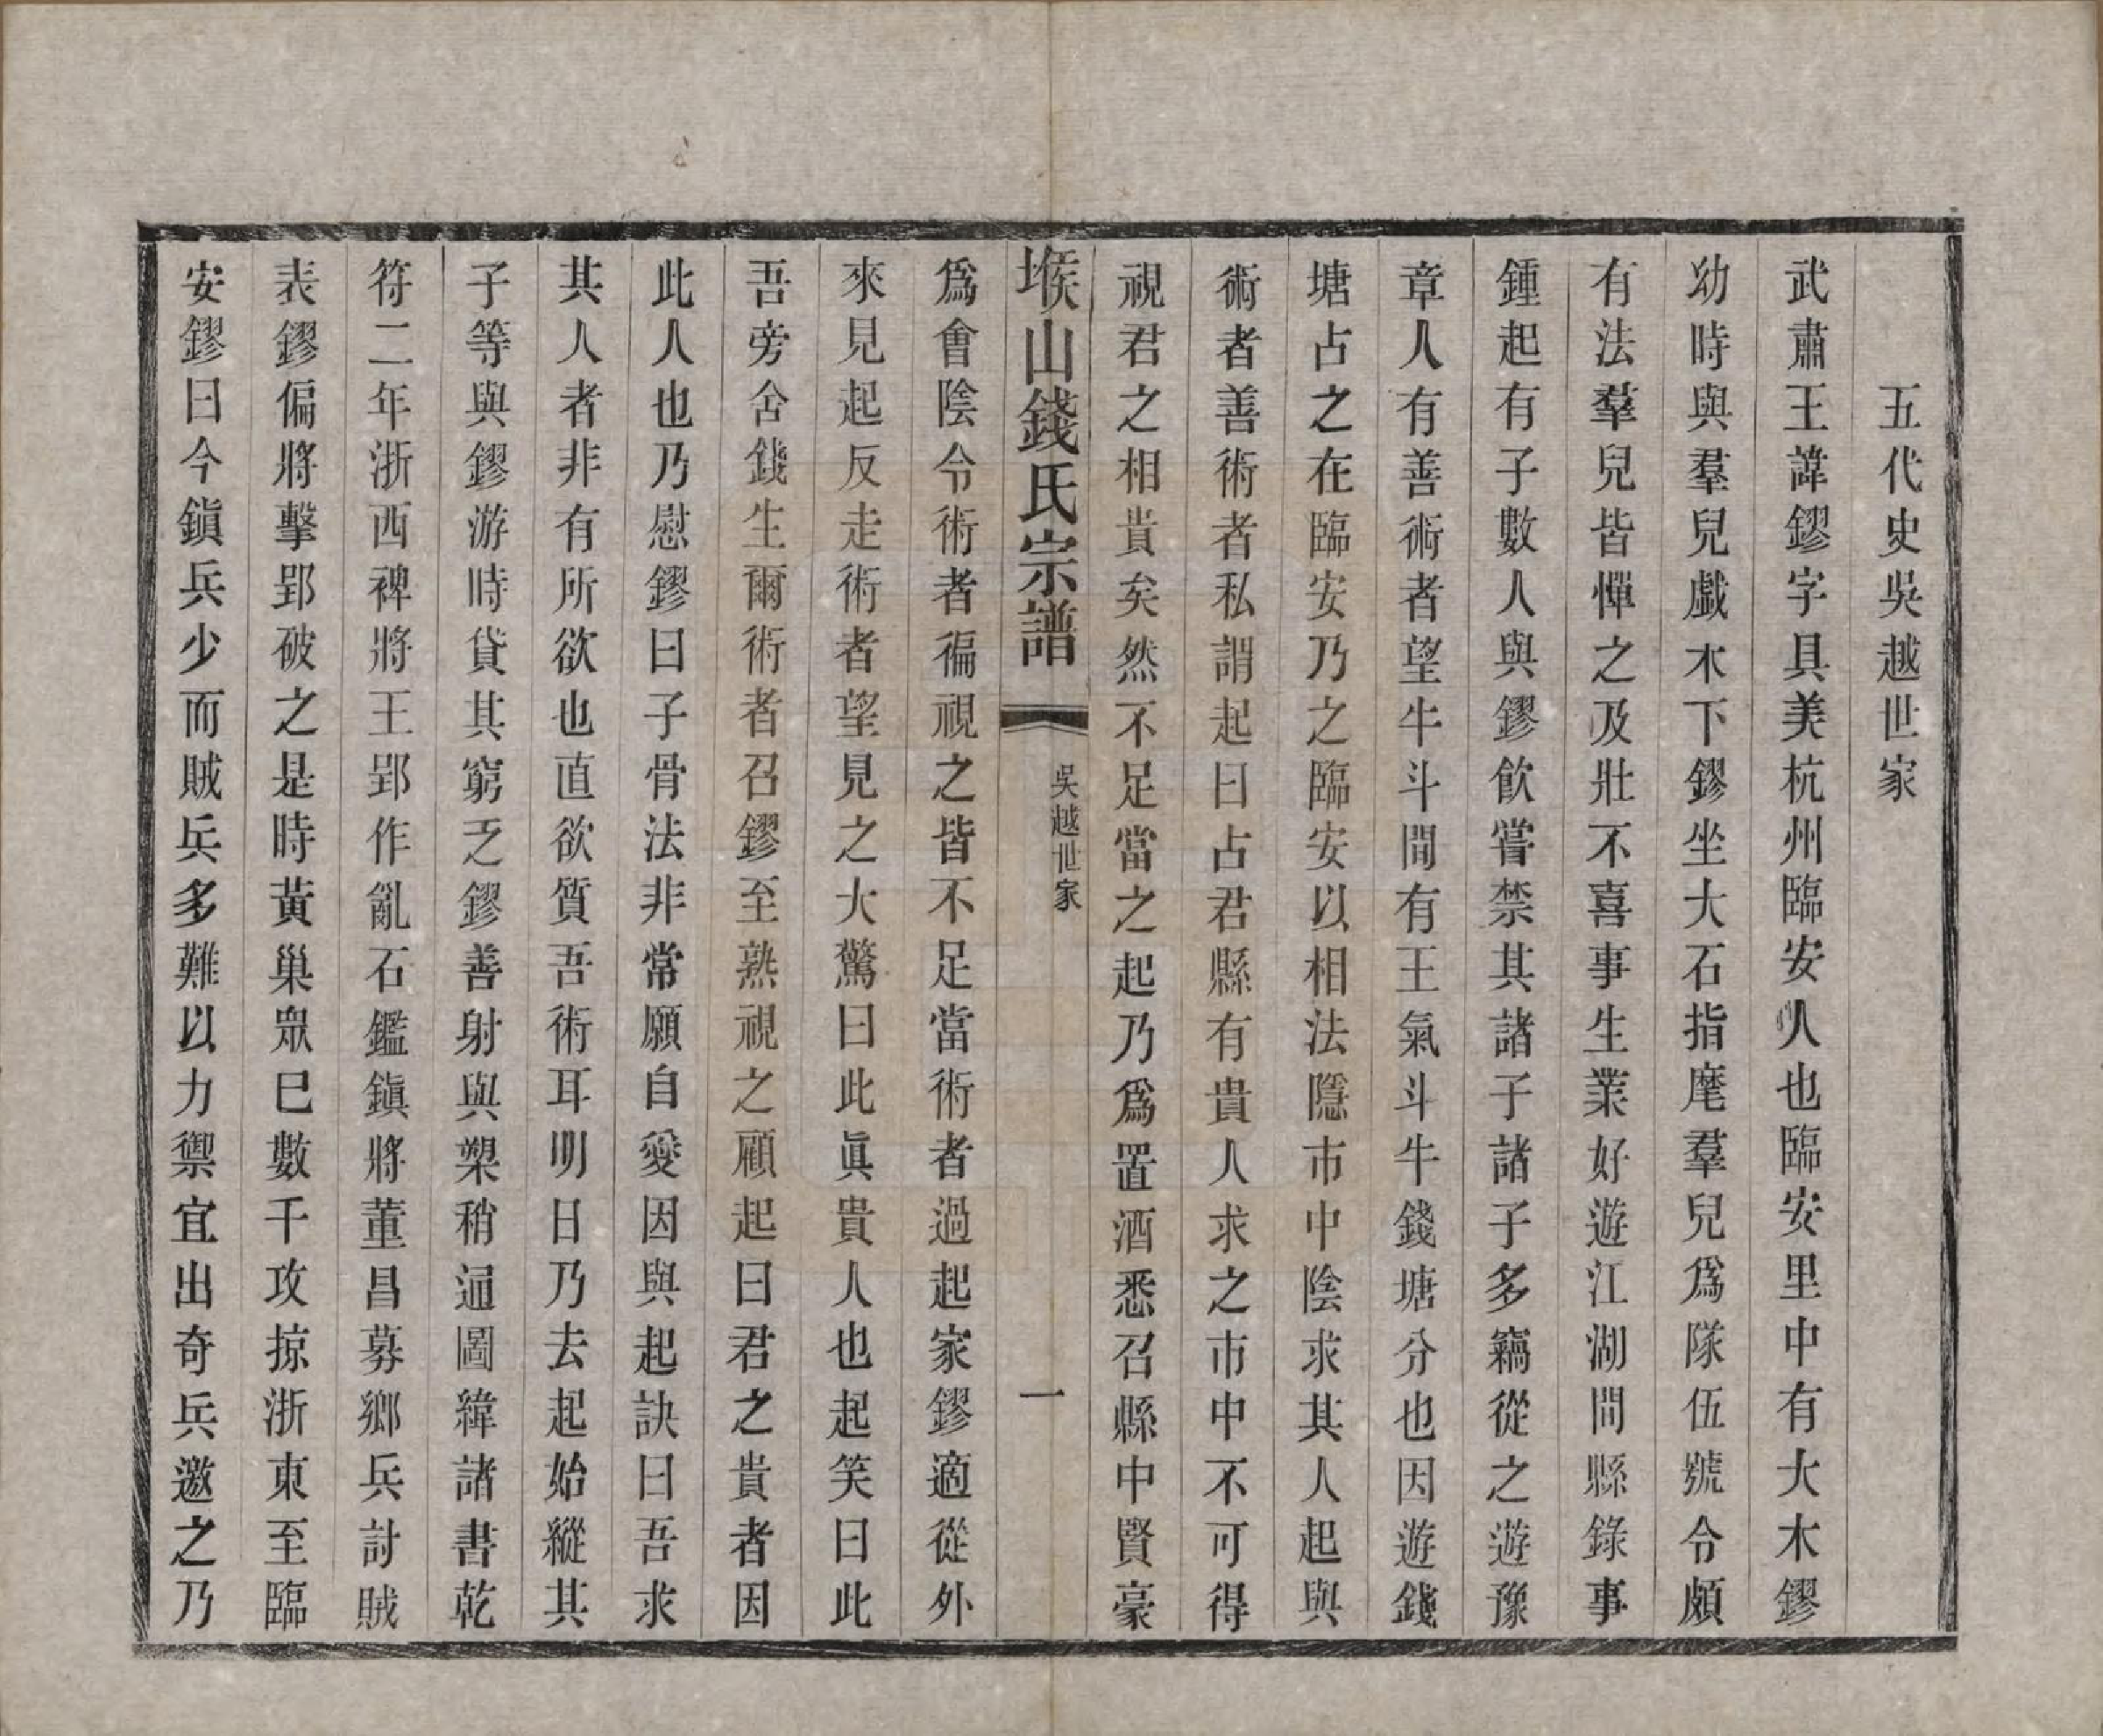 五代史吳越世家
武肅王諱鏐字具美杭州臨安人也臨安里中有大木鏐
幼時與羣兒戲木下鏐坐大石指麾羣兒爲隊伍號令頗
有法羣兒皆憚之及壯不喜事生業好遊江湖間縣錄事
鍾起有子數人與鏐飲嘗禁其諸子諸子多竊從之遊豫
章人有善術者望牛斗間有王氣斗牛錢塘分也因遊錢
塘占之在臨安乃之臨安以相法隱市中陰求其人起與
術者善術者私謂起曰占君縣有貴人求之市中不可得
視君之相貴矣然不足當之起乃爲置酒悉召縣中賢豪
堠山錢氏宗譜
吳越世家
一
爲會陰令術者徧視之皆不足當術者過起家鏐適從外
來見起反走術者望見之大驚曰此眞貴人也起笑曰此
吾旁舍錢生爾術者召鏐至熟視之顧起曰君之貴者因
此人也乃慰鏐曰子骨法非常願自愛因與起訣曰吾求
其人者非有所欲也直欲質吾術耳明日乃去起始縱其
子等與鏐游時貸其窮乏鏐善射與槊稍通圖緯諸書乾
符二年浙西裨將王郢作亂石鑑鎭將董昌募鄉兵討賊
表鏐偏將擊郢破之是時黃巢眾巳數千攻掠浙東至臨
安鏐曰今鎭兵少而賊兵多難以力禦宜出奇兵邀之乃